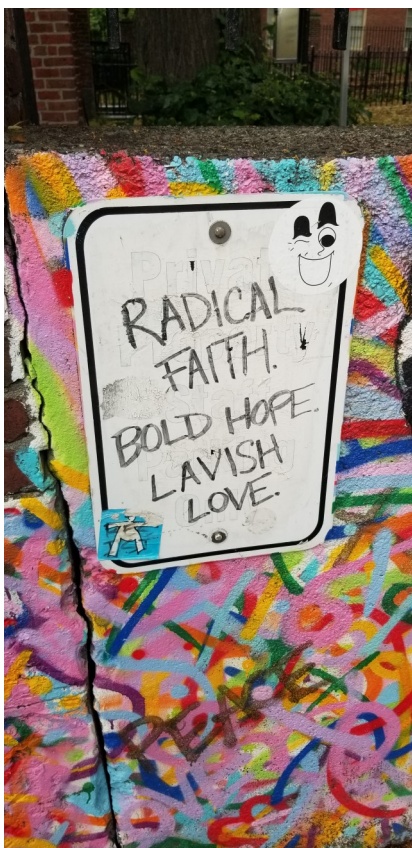 Private
RADICAL
FAITH.
BOLD HOPE.
LAVISH
LOVE.
PEACE